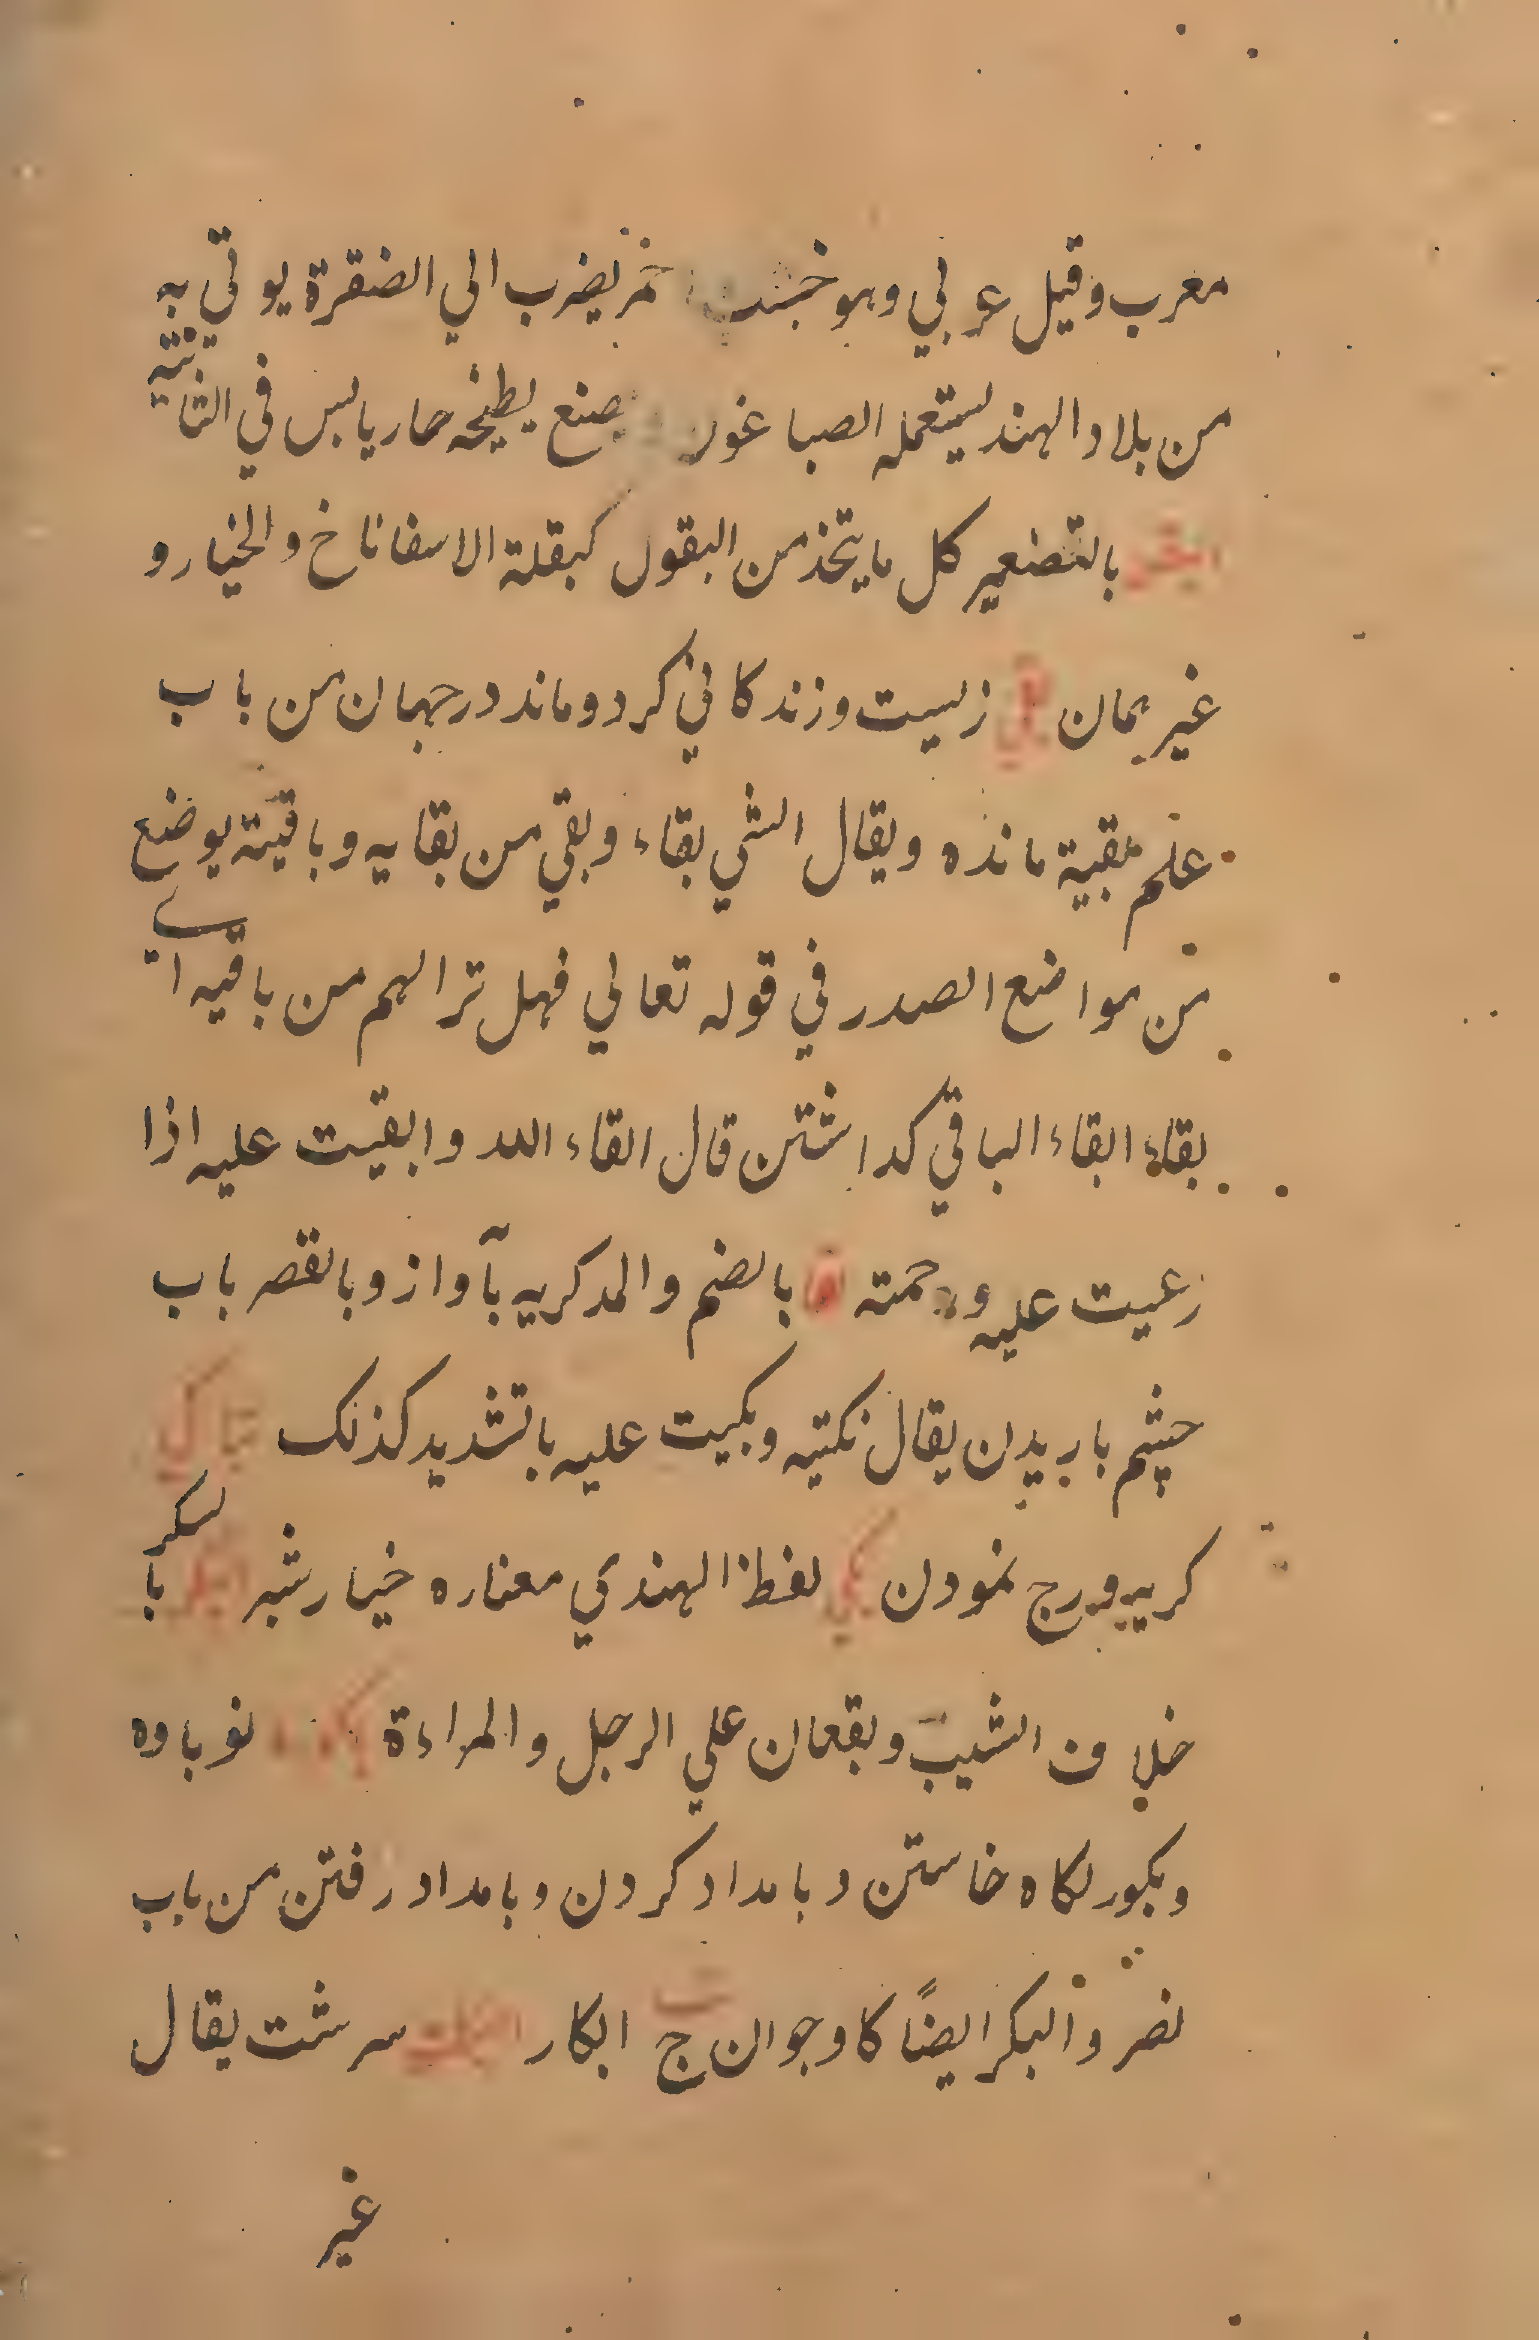 معرب وقيل عربي وهو خشب احمر يضرب الي الصفرة يوتي به
من بلاد الهند يستعمله الصباغون و يصنع بطيخه حار يابس في الثانية
بالتصغير كل ما يتخذ من البقول كبقلة الاسفاناخ والخيار و
غير يمان بقي زيست وزندكاني كرد و ماند در جهان من باب
علم بقية مانده ويقال الشي بقاء وبقي من بقايه وباقيته يوضع
من مواضع الصدر في قوله تعالي فهل ترا لهم من باقيه اي
بقاء ابقاء الباقي كداشتن قال ابقاء الله وابقيت عليه اذا
رعيت عليه ورحمته بالضم والمد كريه بآواز وبالقصر باب
چشم باريدن يقال بكتيه وبكيت عليه باتشديد كذلك تباكي
كريه ورج نمودن لفظ الهندي معناره خيار شنبر البكر بالسكر
خلاف الشيب ويقعان علي الرجل والمراءة نوباوه
وبكور لكاه خاستن و بامداد كردن و بامداد رفتن من باب
نصر والبكر ايضاً كاو جوان ج ابكار سرشت يقال
غير